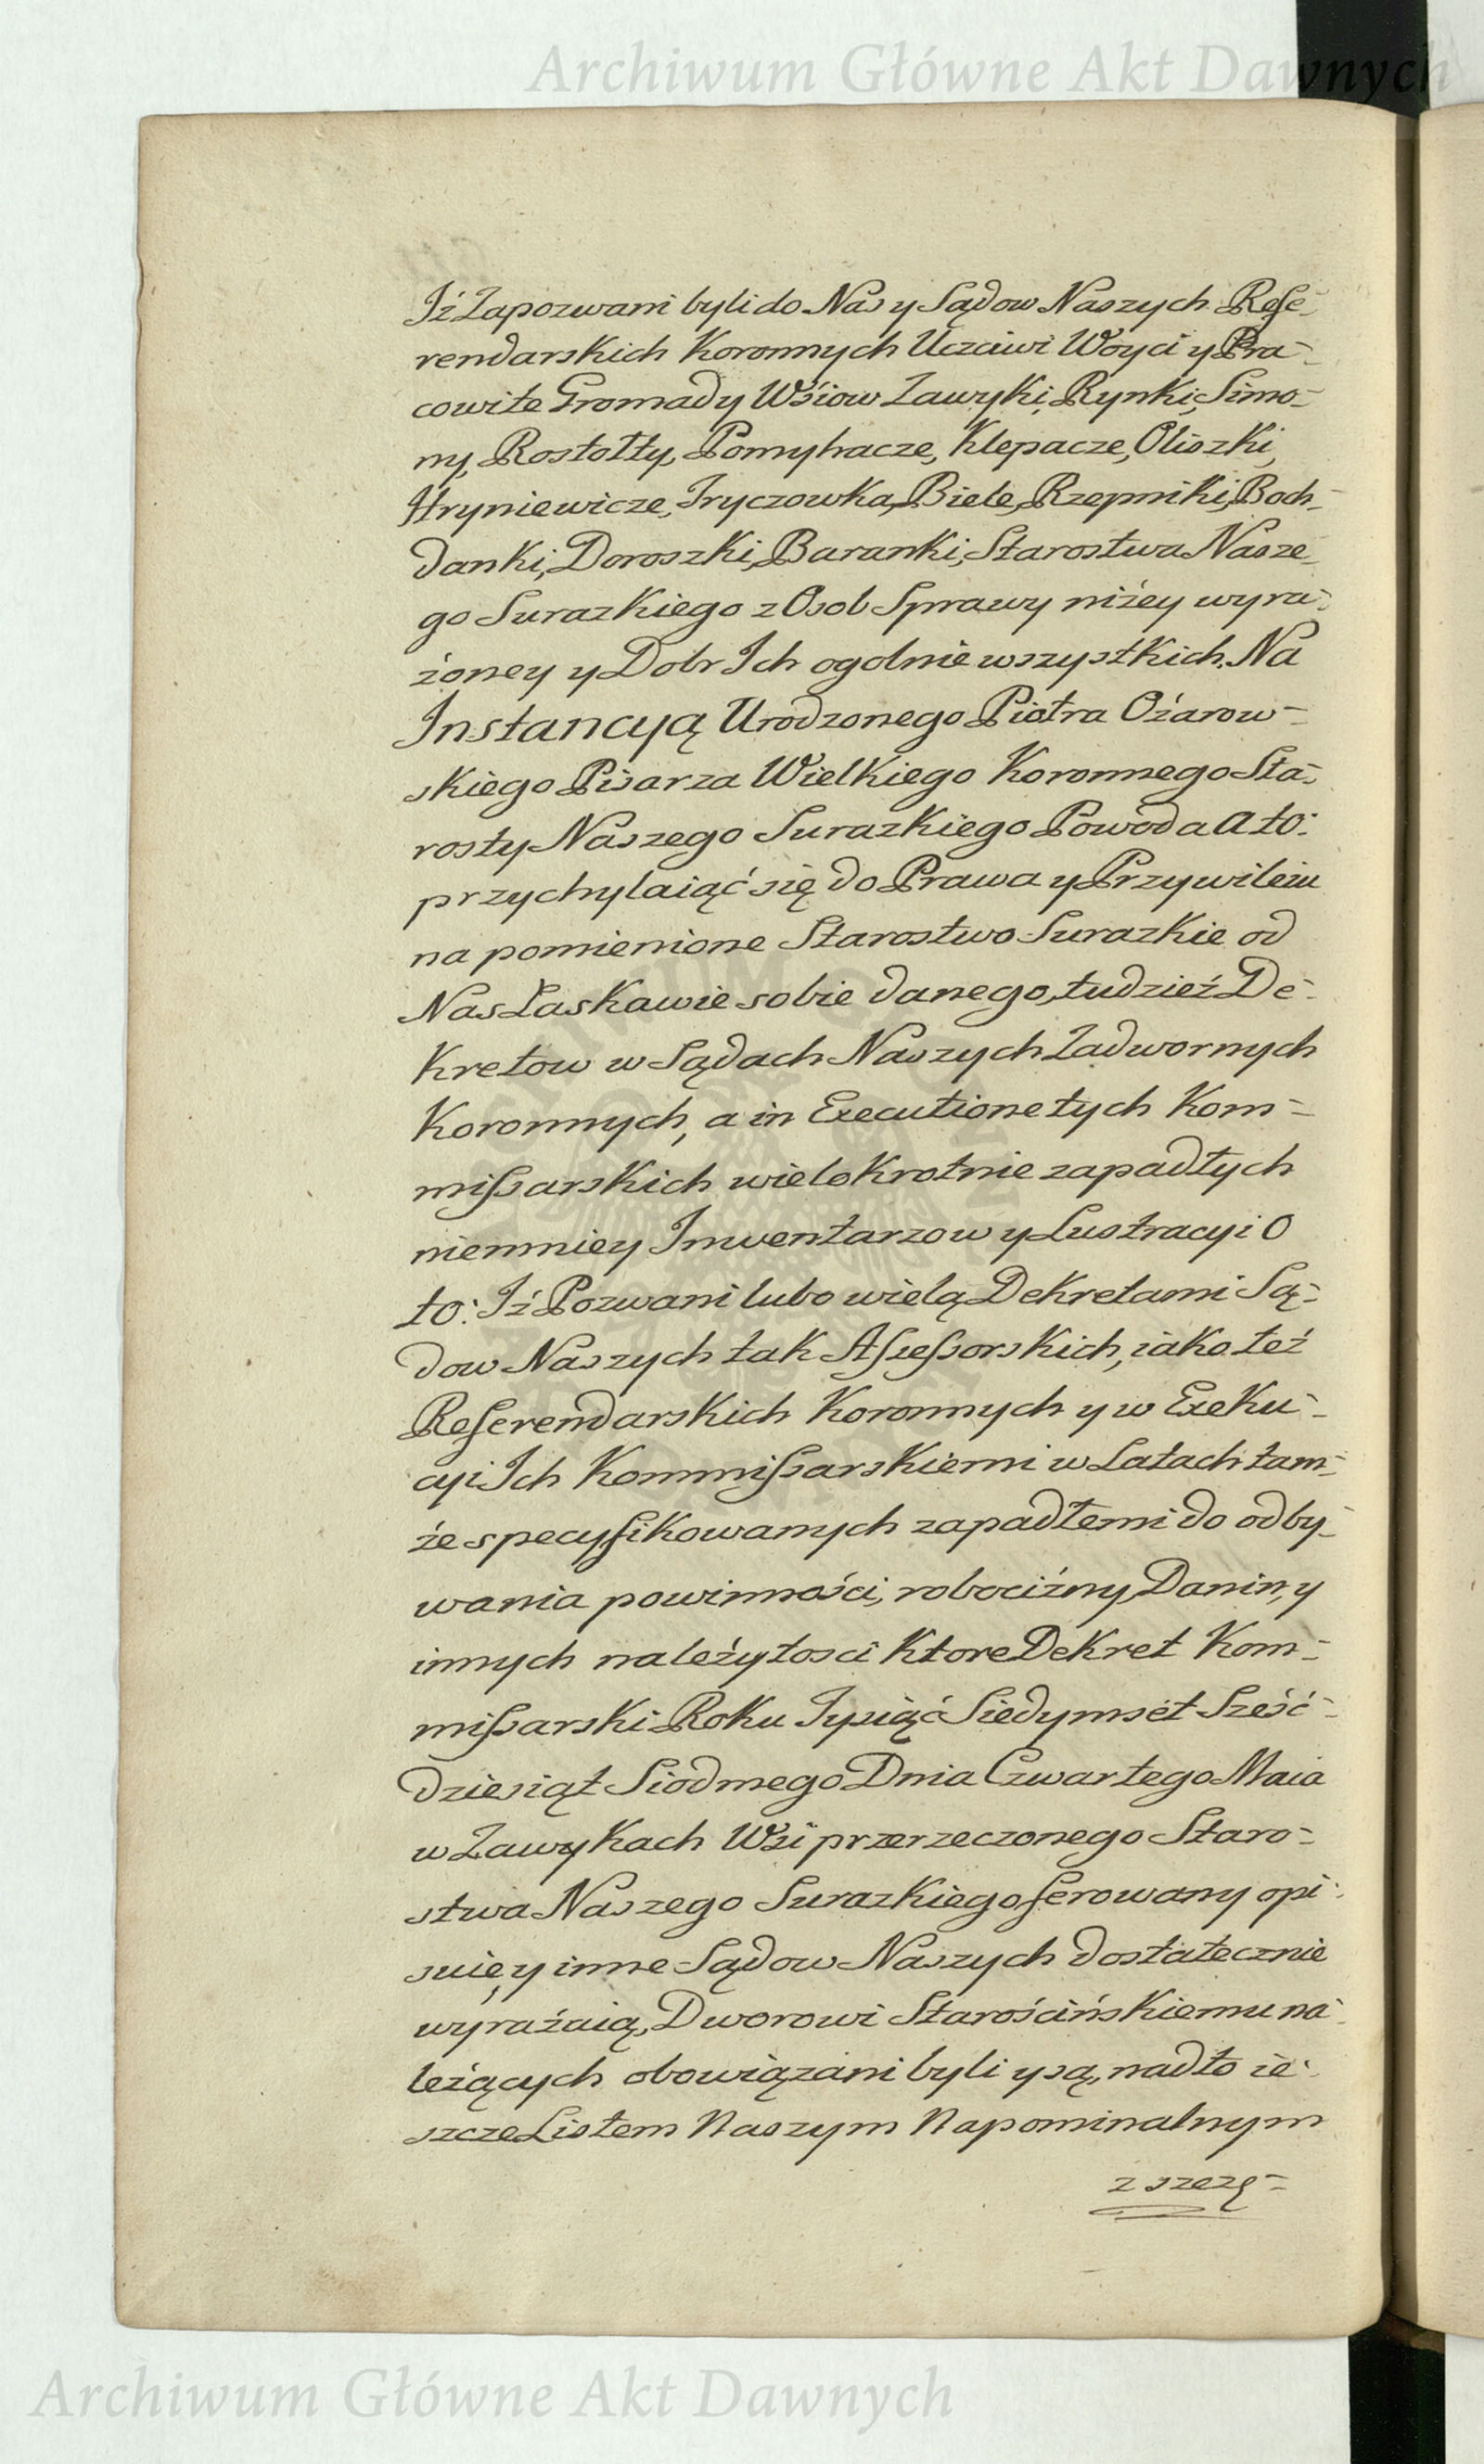 Archiwum Główne Akt Dawnych
Iż Zapozwani byli do Nas y Sądow Naszych Refe-
rendarskich Koronnych Uczciwi Woyci y Pra-
cowite Gromady Wsiow Zawyki, Rynki, Simo-
ny, Rostołty, Pomyhacze, Klepacze, Oliszki,
Hryniewicze, Tryczowka, Biele, Rzepniki, Boch-
danki, Doroszki, Baranki, Starostwa Nasze-
go Surazkiego z Osob Sprawy niżey wyra-
żoney y Dobr Ich ogolnie wszystkich. Na
Instancyą Urodzonego Piotra Ożarow-
skiego Pisarza Wielkiego Koronnego Sta-
rosty Naszego Surazkiego Powoda a to:
przychylaiąć się do Prawa y Przywileiu
na pomienione Starostwo Surazkie od
Nas Łaskawie sobie danego, tudzież De-
kretow w Sądach Naszych Zadwornych
Koronnych, a in Executione tych Kom-
missarskich wielokrotnie zapadłych
niemniey Inwentarzow y Lustracyi O
to: Iż Pozwani lubo wielą Dekretami Są-
dow Naszych tak Assessorskich, iako też
Referendarskich Koronnych y w Exeku-
cyi Ich Kommissarskiemi w Latach tam-
że specyfikowanych zapadłemi do odby-
wania powinności, robociżny, Danin, y
innych należytosci ktore Dekret Kom-
missarski Roku Tysiąć Siedymset Sześć-
dziesiąt Siodmego Dnia Czwartego Maia
w Zawykach Wsi przerzeczonego Staro-
stwa Naszego Surazkiego ferowany opi-
suie, y inne Sądow Naszych dostatecznie
wyrażaią, Dworowi Starościńskiemu na-
leżących obowiązani byli y są, nadto ie-
szcze Listem Naszym Napominalnym
z szczę-
Archiwum Główne Akt Dawnych